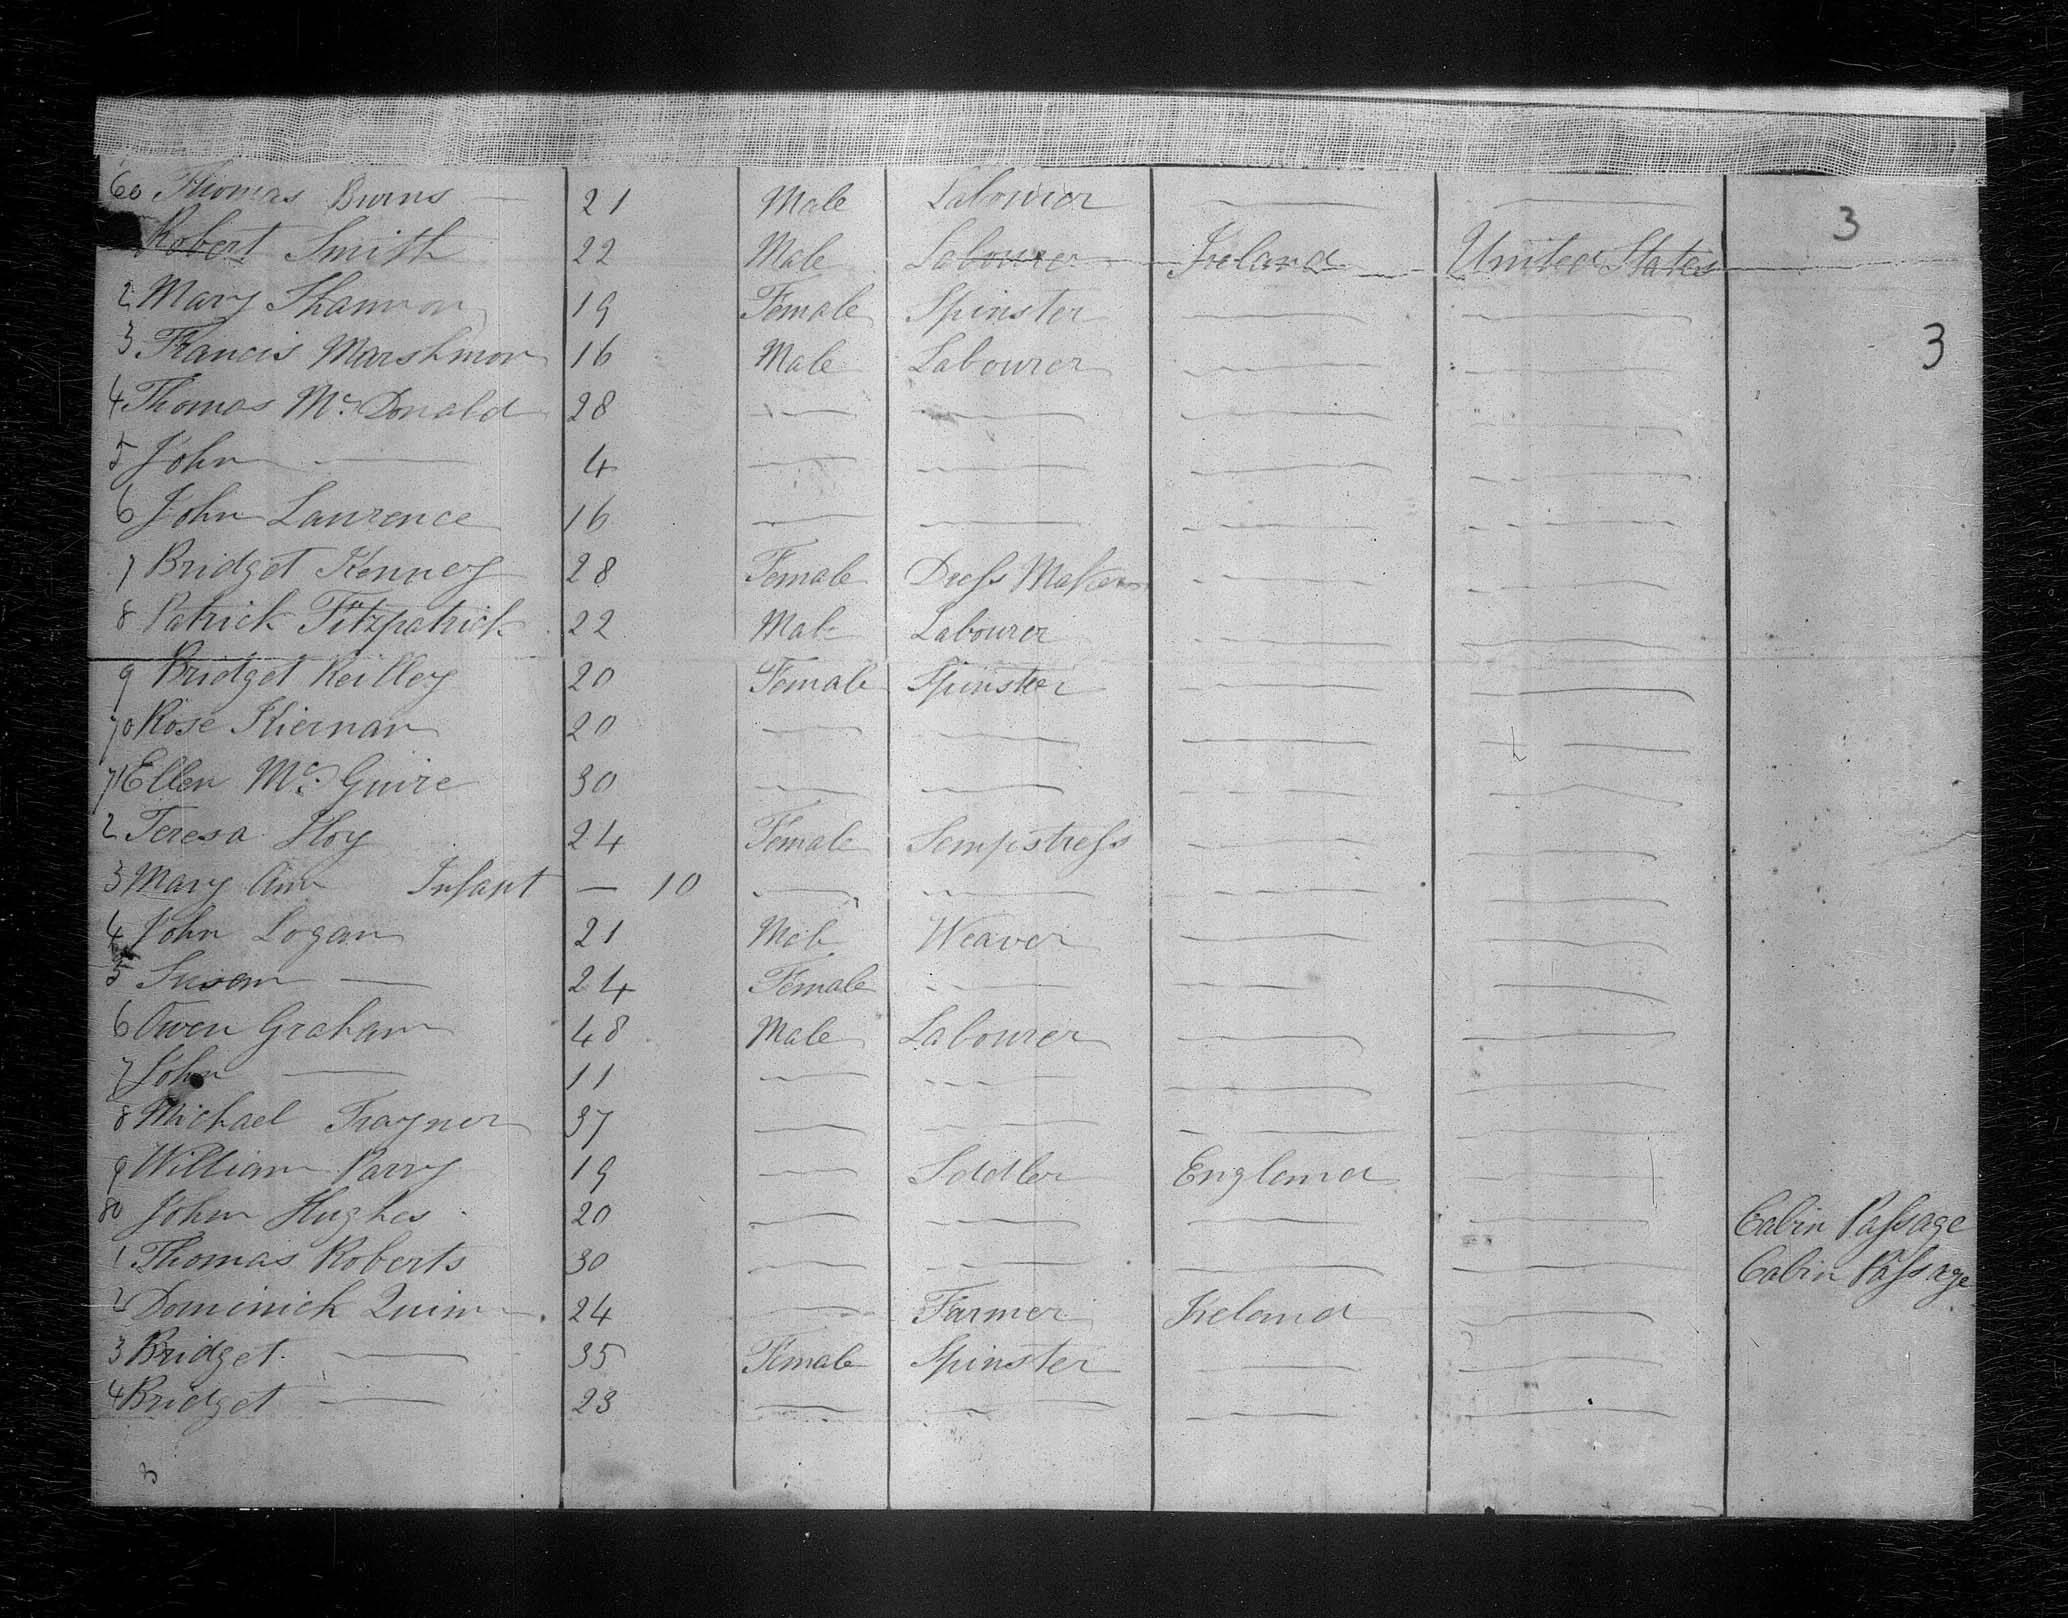 60 Thomas Burns — 21 Male Labourer — — 3
Robert Smith 22 Male Labourer Ireland United States
2 Mary Shannon 19 Female Spinster — — 3
3 Francis Marshmon 16 Male Labourer — —
4 Thomas Mc. Donald 28 — — — —
5 John — 4 — — — —
6 John Laurence 16 — — — —
7 Bridget Kenney 28 Female Dress Maker — —
8 Patrick Fitzpatrick 22 Male Labourer — —
9 Bridget Reilley 20 Female Spinster — —
70 Rose Kiernan 20 — — — —
71 Ellen Mc. Guire 30 — — — —
2 Teresa Hoy 24 Female Sempstress — —
3 Mary Ann Infant — 10 — — — —
4 John Logan 21 Male Weaver — —
5 Susan — 24 Female — — —
6 Owen Graham 48 Male Labourer — —
7 John — 11 — — — —
8 Michael Traynor 37 — — — —
9 William Parry 19 — Saddler England —
80 John Hughes 20 — — — — Cabin Passage
1 Thomas Roberts 30 — — — — Cabin Passage
2 Dominick Quinn 24 — Farmer Ireland —
3 Bridget — 35 Female Spinster — —
4 Bridget — 23 — — — —